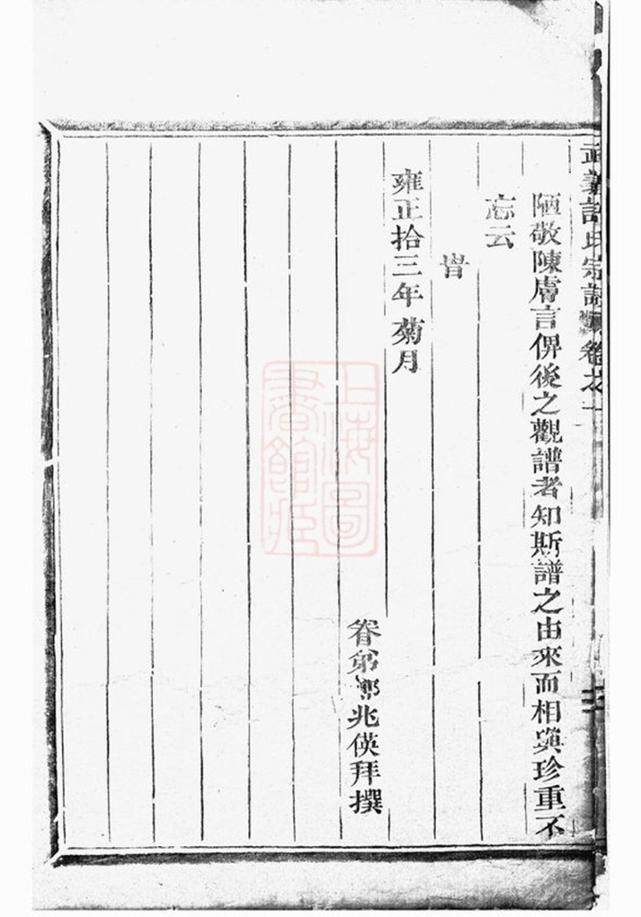 武義許氏宗譜 卷之一
陋敬陳膚言俾後之觀譜者知斯譜之由來而相與珍重不
忘云
旹
雍正拾三年菊月
眷弟鄭兆僙拜撰
上海圖書館藏